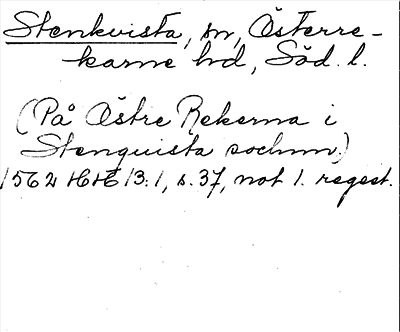 Stenkvista, sn, Österre-
karne hd, Söd. l.
(På Östre Rekerna i
Stenquista sochnn)
1562 HH 13:1, s. 37, not 1. regest.